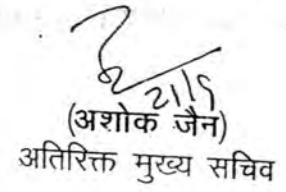 21/5
(अशोक जैन)
अतिरिक्त मुख्य सचिव